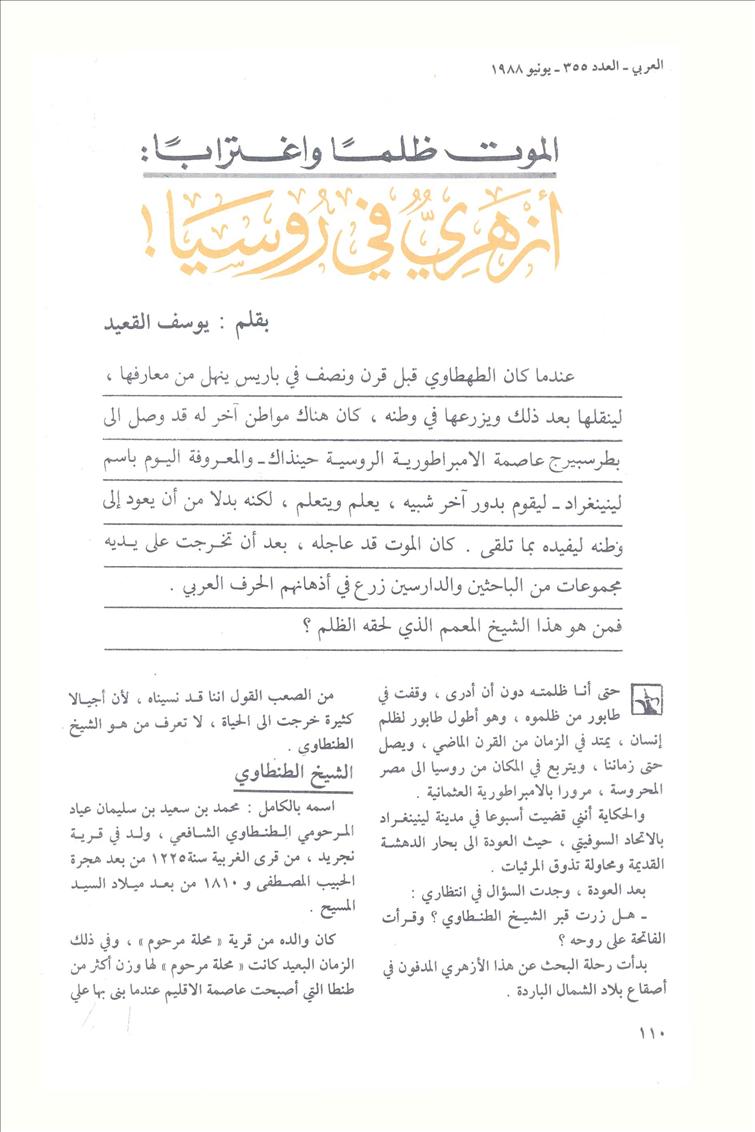 العربي - العدد ٣٥٥ - يونيو ١٩٨٨
الموت ظلمًا واغترابًا:
أزهريٌّ في رُوسيَا!
بقلم : يوسف القعيد
عندما كان الطهطاوي قبل قرن ونصف في باريس ينهل من معارفها ،
لينقلها بعد ذلك ويزرعها في وطنه ، كان هناك مواطن آخر له قد وصل الى
بطرسبيرج عاصمة الامبراطورية الروسية حينذاك - والمعروفة اليوم باسم
لينينغراد - ليقوم بدور آخر شبيه ، يعلم ويتعلم ، لكنه بدلا من أن يعود إلى
وطنه ليفيده بما تلقى . كان الموت قد عاجله ، بعد أن تخرجت على يديه
مجموعات من الباحثين والدارسين زرع في أذهانهم الحرف العربي .
فمن هو هذا الشيخ المعمم الذي لحقه الظلم ؟
حتى أنا ظلمته دون أن أدرى ، وقفت في
طابور من ظلموه ، وهو أطول طابور لظلم
إنسان ، يمتد في الزمان من القرن الماضي ، ويصل
حتى زماننا ، ويتربع في المكان من روسيا الى مصر
المحروسة ، مرورا بالامبراطورية العثمانية .
والحكاية أنني قضيت أسبوعا في مدينة لينينغراد
بالاتحاد السوفيتي ، حيث العودة الى بحار الدهشة
القديمة ومحاولة تذوق المرئيات .
بعد العودة ، وجدت السؤال في انتظاري :
- هل زرت قبر الشيخ الطنطاوي ؟ وقرأت
الفاتحة على روحه ؟
بدأت رحلة البحث عن هذا الأزهري المدفون في
أصقاع بلاد الشمال الباردة .
من الصعب القول اننا قد نسيناه ، لأن أجيالا
كثيرة خرجت الى الحياة ، لا تعرف من هو الشيخ
الطنطاوي .
الشيخ الطنطاوي
اسمه بالكامل : محمد بن سعيد بن سليمان عياد
المرحومي الطنطاوي الشافعي ، ولد في قرية
نجريد ، من قرى الغربية سنة ١٢٢٥ من بعد هجرة
الحبيب المصطفى و ١٨١٠ من بعد ميلاد السيد
المسيح .
كان والده من قرية « محلة مرحوم » ، وفي ذلك
الزمان البعيد كانت « محلة مرحوم » لها وزن أكثر من
طنطا التي أصبحت عاصمة الاقليم عندما بنى بها علي
١١٠